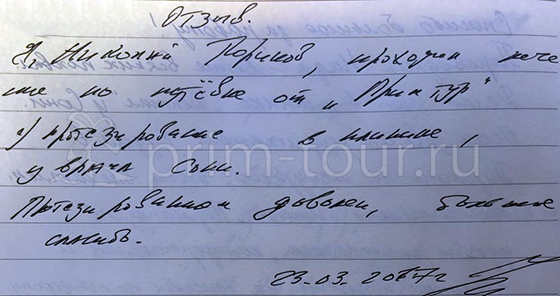 Отзыв.
Я, Николай Кориков, проходил лече
ние по путёвке от „Прим тур"
prim-tour.ru
протезирование в клинике,
у врача Сони.
Протезированием доволен, большое
спасибо.
23.03.2017г